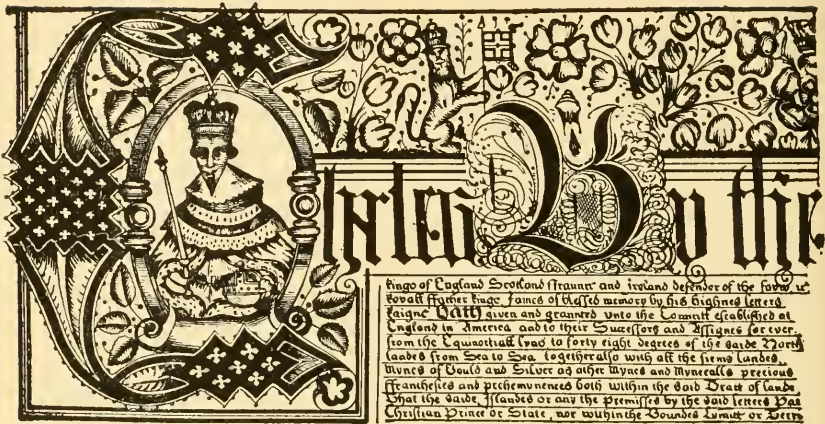 Charles By the
kings of England Scotland ffraunce and ireland defender of the fayth
Royall ffather kinge James of blessed memory by his highnes letters
Raigne Hath given and graunted vnto the Councell established at
England in America and to their Successors and Assignes for ever.
from the Equinoctiall lyne to forty eight degrees of the saide North
landes from Sea to Sea together also with all the firme landes
Mynes of Gould and Silver as other Mynes and Myneralls precious
ffranchesies and prehemynences both within the said Tract of lande
That the saide Islandes or any the premisses by the said letters Pat
Christian Prince or State, nor within the Boundes Lymitt or Terr